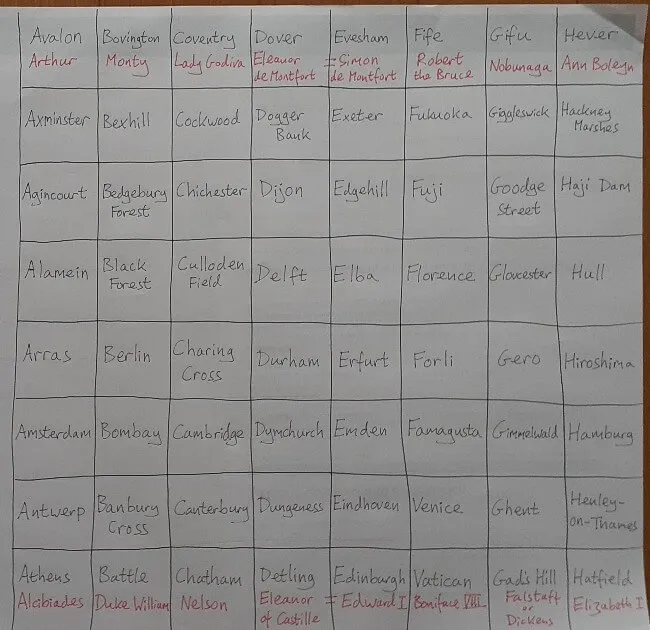 Avalon Bovington Coventry Dover Evesham Fife Gifu Hever
Arthur Monty Lady Godiva Eleanor = Simon Robert Nobunaga Ann Boleyn
de Montfort de Montfort the Bruce
Axminster Bexhill Cockwood Dogger Exeter Fukuoka Giggleswick Hackney
Bank Marshes
Agincourt Bedgebury Chichester Dijon Edgehill Fuji Goodge Haji Dam
Forest Street
Alamein Black Culloden Delft Elba Florence Gloucester Hull
Forest Field
Arras Berlin Charing Durham Erfurt Forli Gero Hiroshima
Cross
Amsterdam Bombay Cambridge Dymchurch Emden Famagusta Gimmelwald Hamburg
Antwerp Banbury Canterbury Dungeness Eindhoven Venice Ghent Henley-
Cross on-Thames
Athens Battle Chatham Detling Edinburgh Vatican Gad's Hill Hatfield
Alcibiades Duke William Nelson Eleanor = Edward I Boniface VIII Falstaff Elizabeth I
of Castille or
Dickens